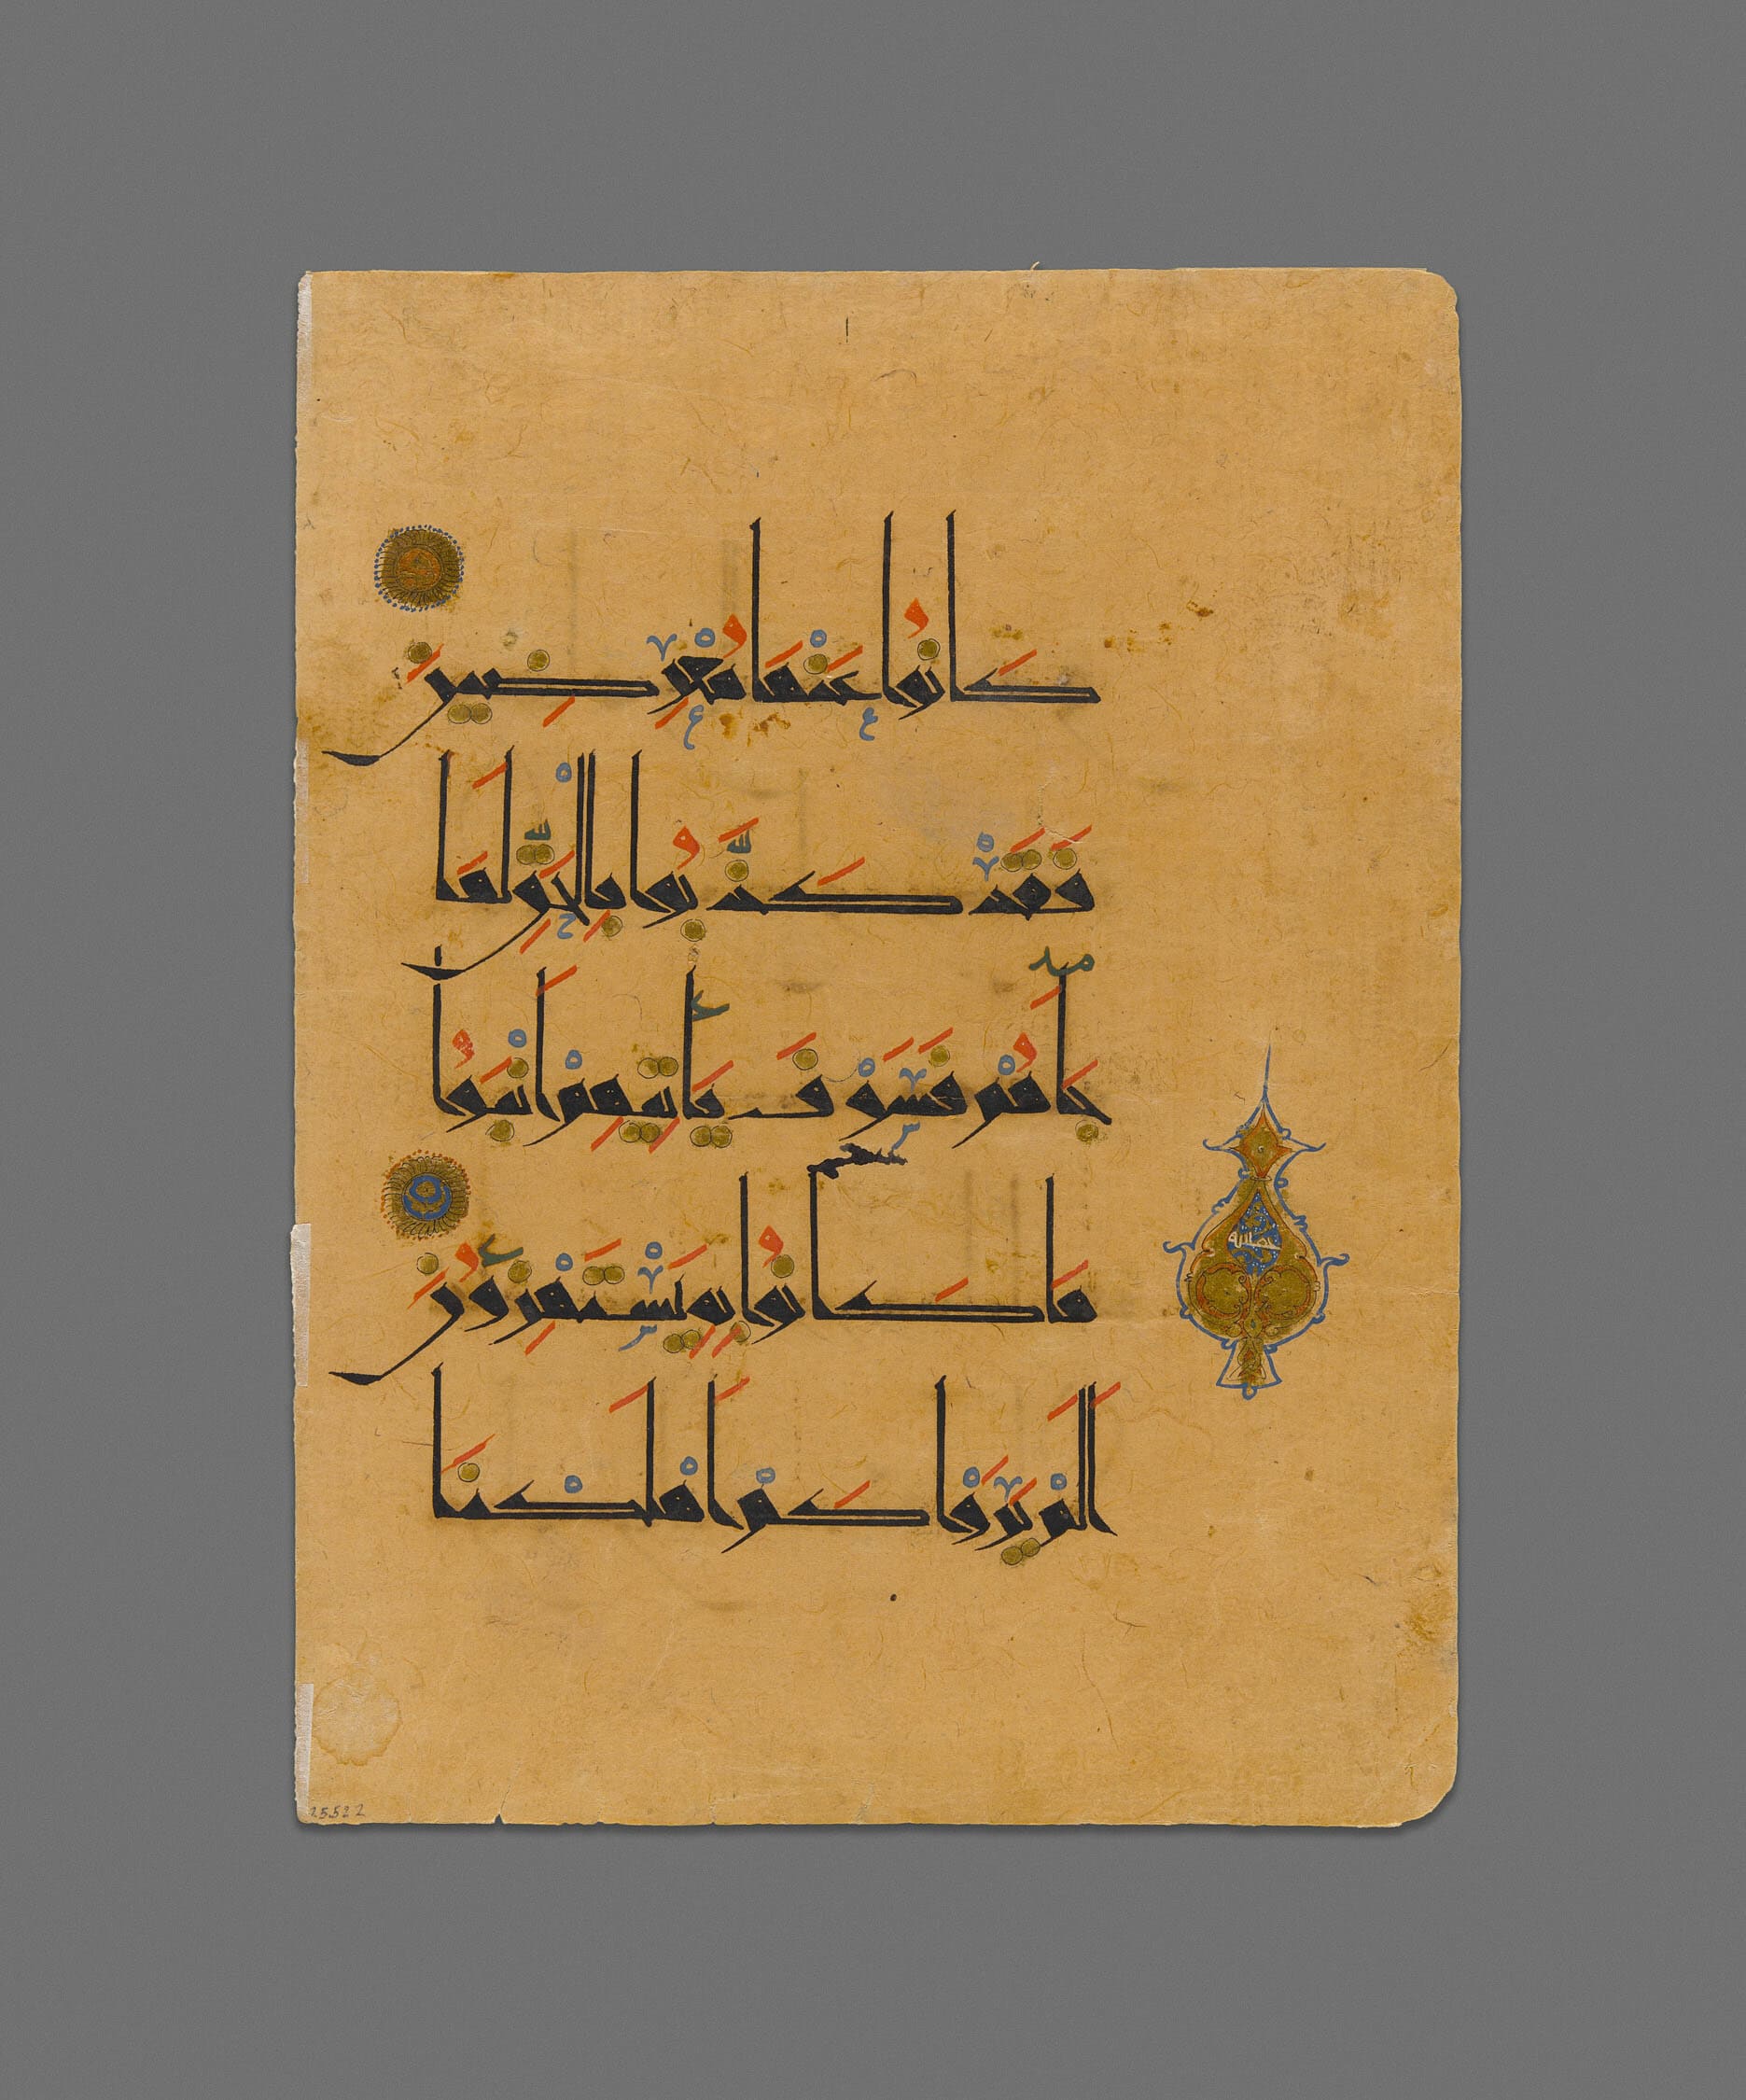 كَانُوا عَنْهَا مُعْرِضِينَ
فَقَدْ كَذَّبُوا بِالْحَقِّ لَمَّا
جَاءَهُمْ فَسَوْفَ يَأْتِيهِمْ أَنْبَٰؤُا
مَا كَانُوا بِهِ يَسْتَهْزِءُونَ
أَلَمْ يَرَوْا كَمْ أَهْلَكْنَا
خمسة
25522